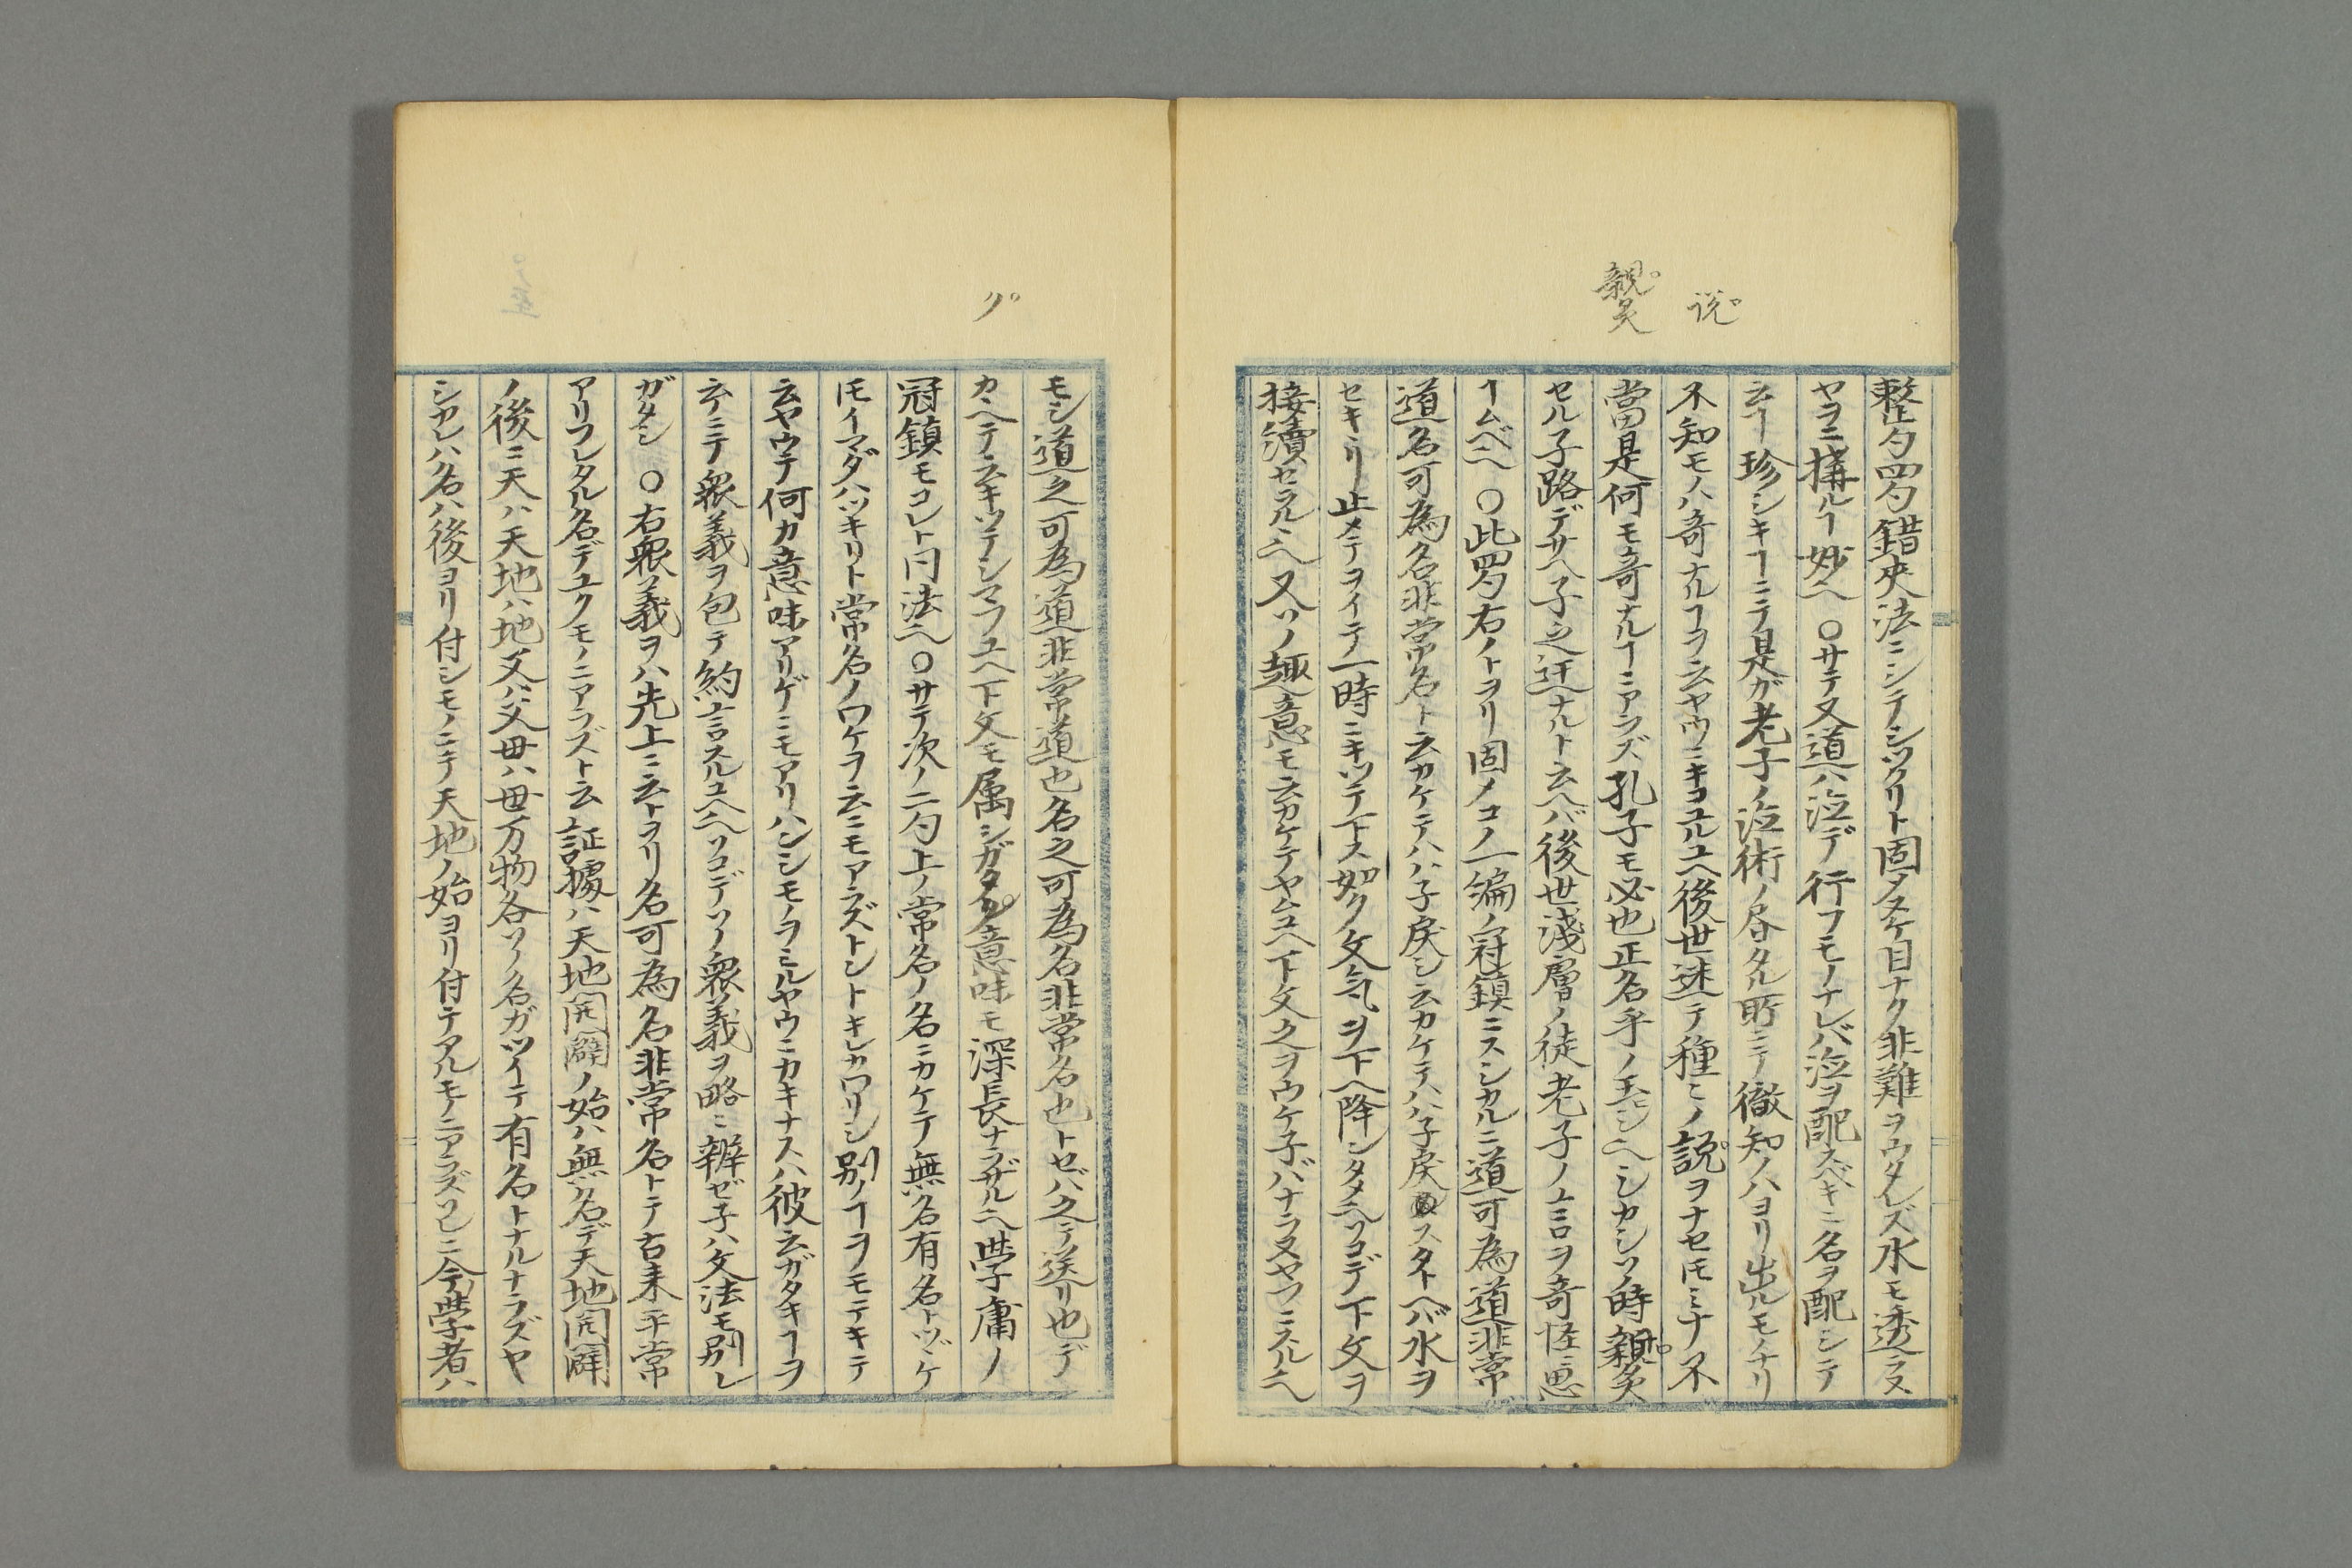 説
親炙
整勺四勺錯夾法ニシテシツクリト固メヌケ目ナク非難ヲウタレズ水モ透ラヌ
ヤヲニ搆ルヿ妙ヘ〇サテ又道ハ泣デ行フモノナレバ泣ヲ配スベキニ名ヲ配シテ
云ヿ珍シキヿニテ是ガ老子ノ泣術ノ居タル所ニテ徹知ノハヨリ出ルモノナリ
不知モノハ奇ナルヿヲ云ヤウニキコユルユヘ後世迷テ種〻ノ説ヲナセ𪜈ミナ不
當是何モ奇ナルヿニアラズ孔子モ必也正名乎ノ玉シヘシカシソノ時親炙
セル子路デサヘ子之迂ナルト云ヘバ後世浅層ノ徒老子ノ言ヲ奇怪ニ思
ヿムベヘ〇此四勺右ノトヲリ固メコノ一編ノ冠鎮ニスシカルニ道可為道非常
道名可為名非常名ト云カケテハハ子戻シ云カケテハハ子戻スタトヘバ水ヲ
セキリ止メテヲイテ一時ニキツテ下ス如ク文気ヲ下ヘ降シタメヘソコデ下文ヲ
接續セラルヘ又ソノ趣意モ云カケテヤムユヘ下文之ヲウケ子バナラヌヤウニスルヘ
ク
モシ道之可為道非常道也名之可為名非常名也トセバ之テ送リ也デ
カヘテ云キツテシマフユヘ下文モ属シガタク意味モ深長ナラザルヘ學庸ノ
冠鎮モコレト同法ヘ〇サテ次ノ二勺上ノ常名ノ名ニカケテ無名有名トツヾケ
𪜈イマダハツキリト常名ノワケヲ云ニモアラズトントキレカワリシ別ノヿヲモテキテ
云ヤウテ何カ意味アリゲニモアリハンシモノヲミルヤウニカキナスハ彼云ガタキヿヲ
云ヿニテ衆義ヲ包テ約言スルユヘヘソコデソノ衆義ヲ略〻辨ゼ子ハ文法モ別レ
ガタシ〇右衆義ヲハ先上ニ云トヲリ名可為名非常名トテ古来平常
アリフレタル名デユクモノニアラズト云証據ハ天地開闢ノ始ハ無名デ天地開闢
ノ後ニ天ハ天地ハ地父ハ父母ハ母万物各ソノ名ガツイテ有名トナルナラズヤ
シカレハ名ハ後ヨリ付シモノニテ天地ノ始ヨリ付テアルモノニアラズソレニ今學者ハ